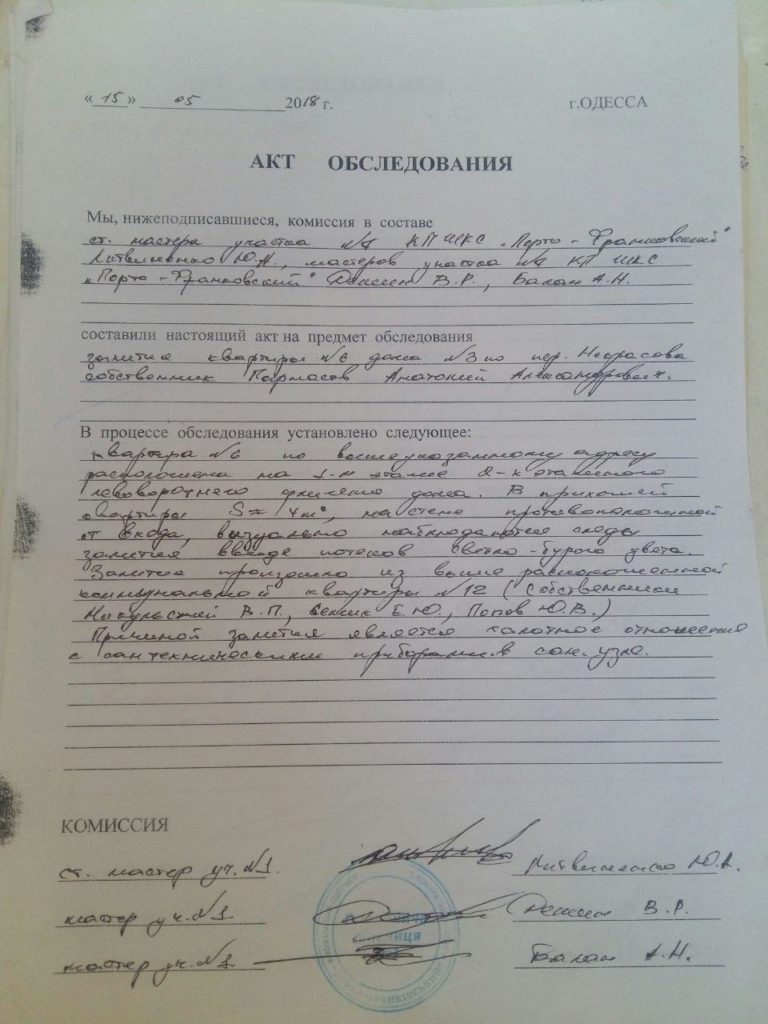 « 15 » 05 2018 г. г.ОДЕССА
АКТ ОБСЛЕДОВАНИЯ
Мы, нижеподписавшиеся, комиссия в составе
ст. мастера участка №1 КП ЖКС „Порто-Франковский"
Литвиненко Ю.А., мастеров участка №1 КП ЖКС
„Порто-Франковский" В.Р., Балан А.Н.
составили настоящий акт на предмет обследования
залития квартиры №6 дома №3 по пер. Некрасова
собственник Анатолий Александрович.
В процессе обследования установлено следующее:
квартира №6 по вышеуказанному адресу
расположена на 1-м этаже 2-х этажного
левоворотнего флигеля дома. В прихожей
квартиры S≈ 4м², на стене противоположной
от входа, визуально наблюдаются следы
залития ввиде потеков светло-бурого цвета.
Залитие произошло из выше расположенной
коммунальной квартиры №12 (собственники
В.П., Е.Ю., Попов Ю.В.)
Причиной залития является халатное отношение
с сантехническими приборами в сан. узле.
КОМИССИЯ
ст. мастер уч. №1. Литвиненко Ю.А.
мастер уч. №1 В.Р.
мастер уч. №1 Балан А.Н.